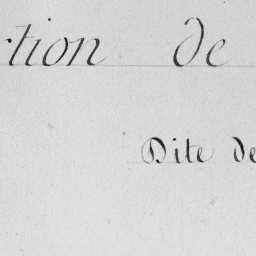 tion de
Dite de